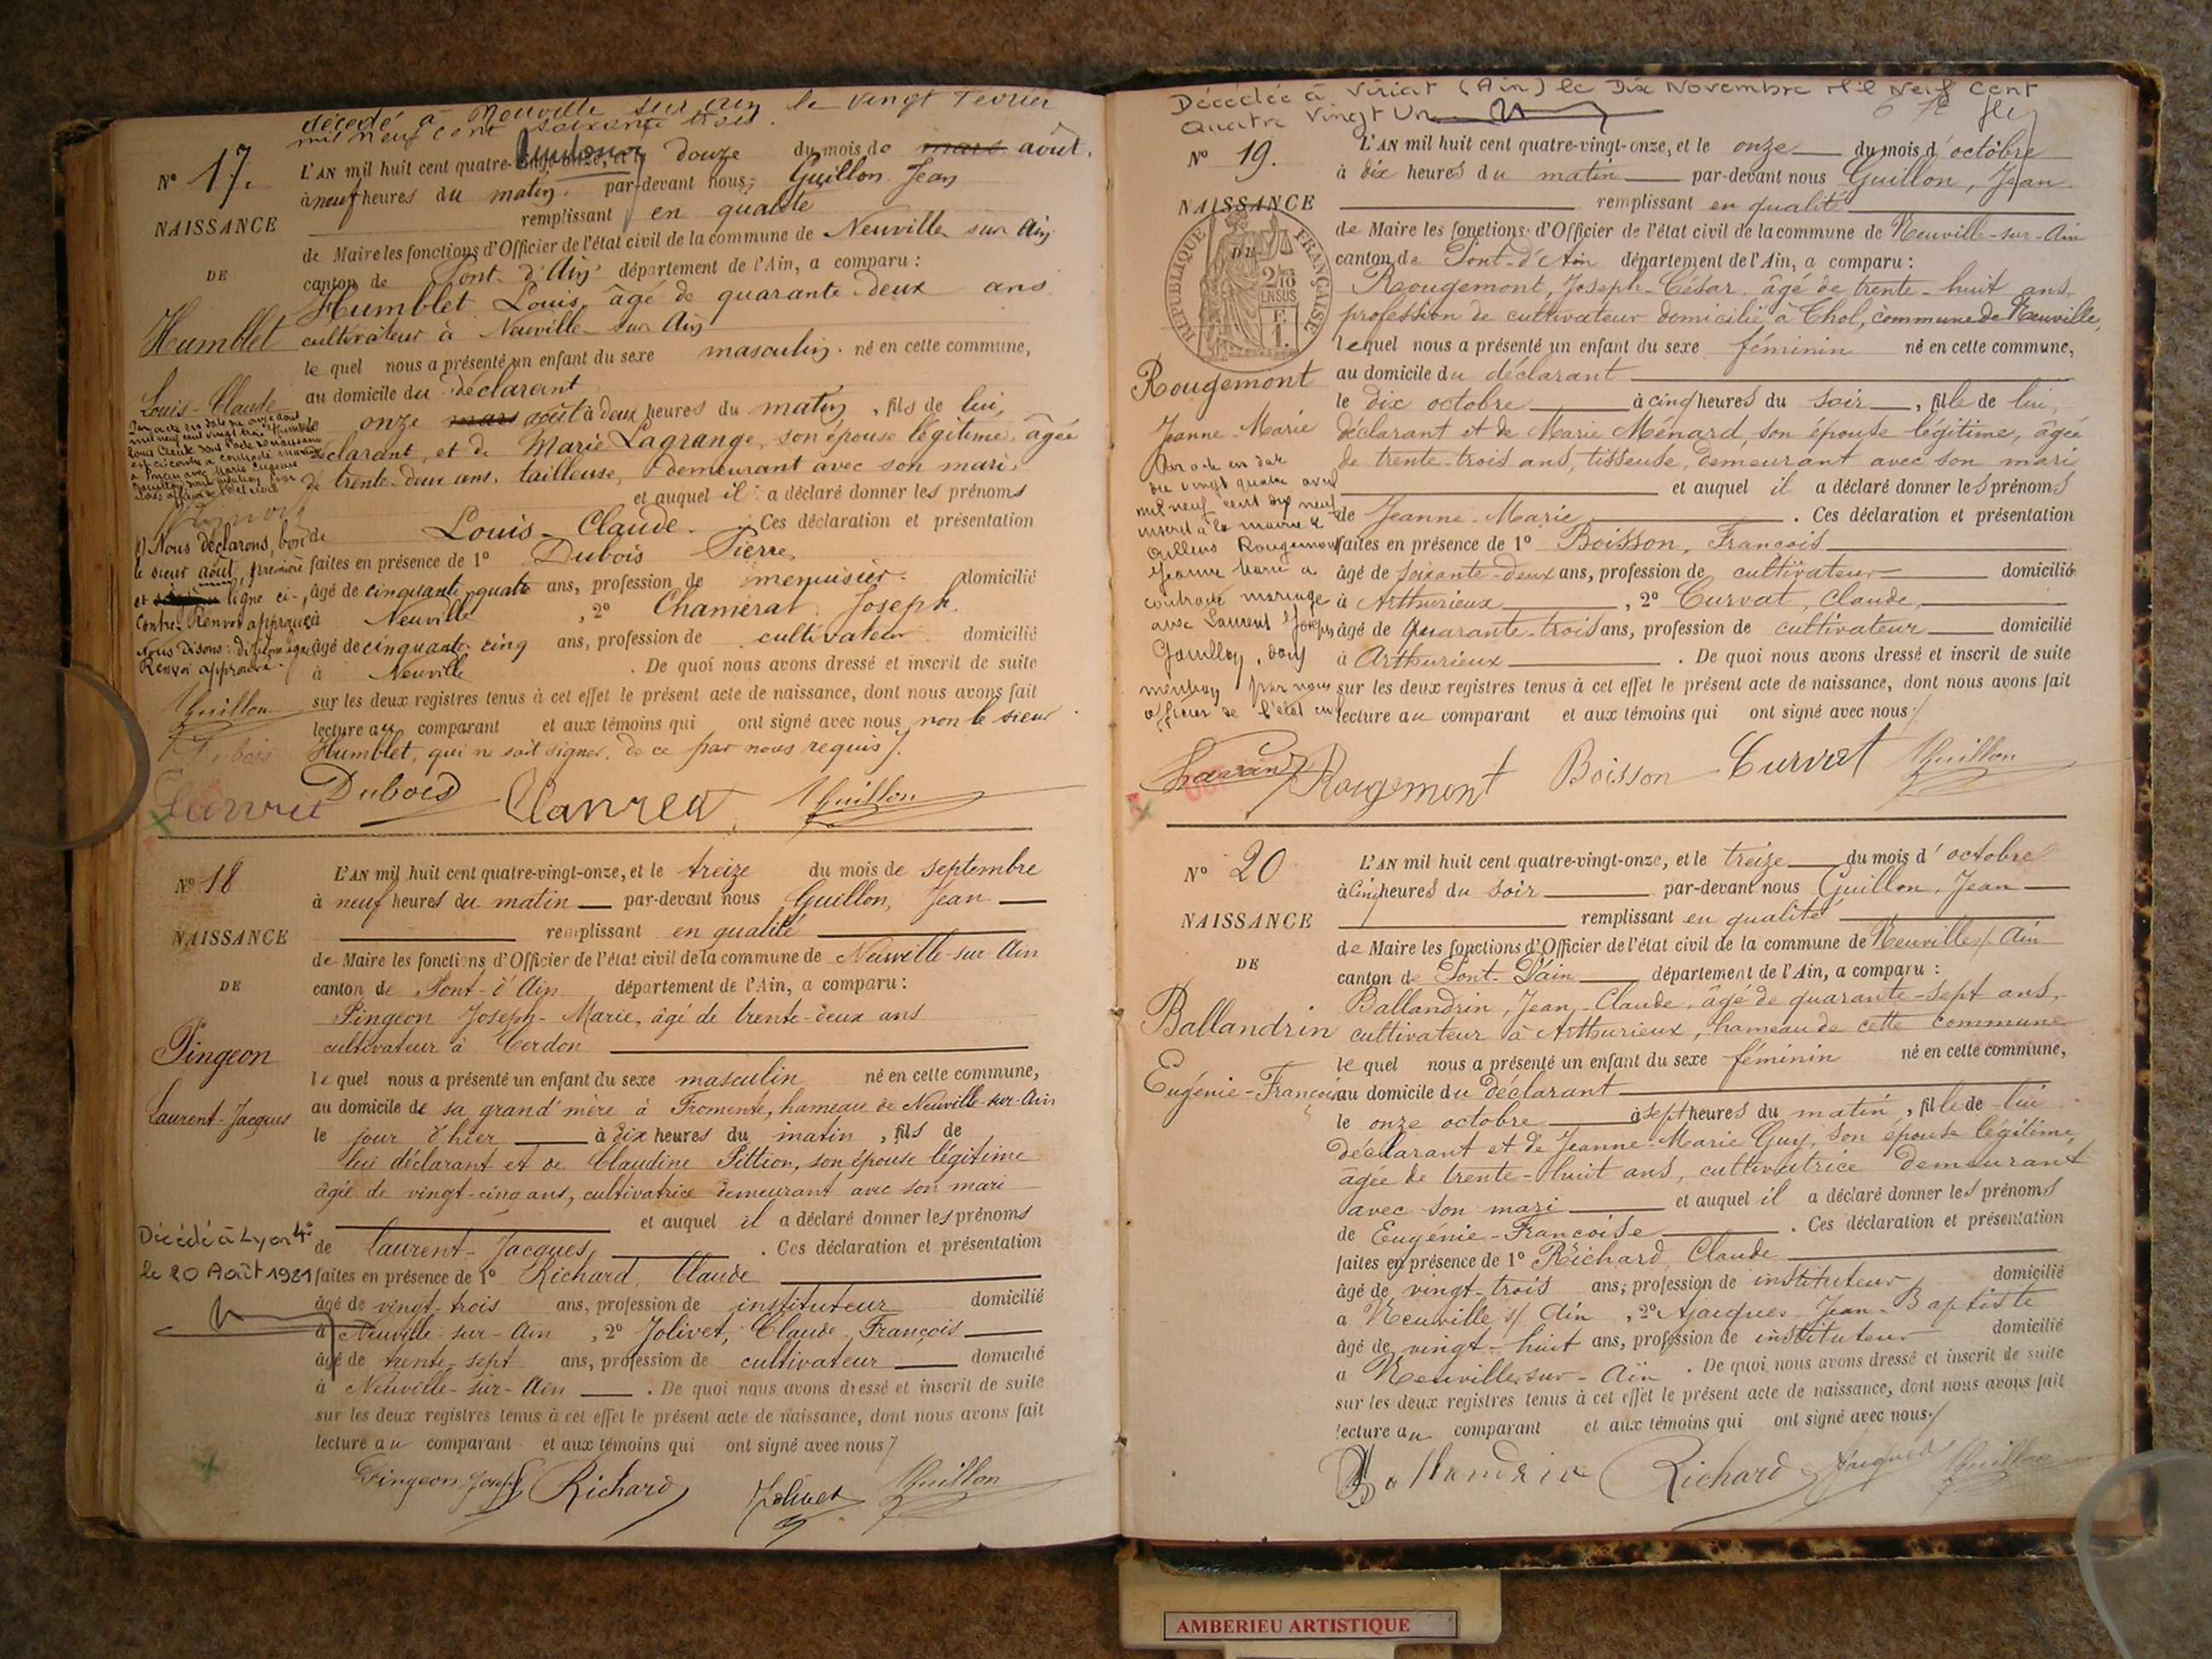 décédé à Neuville sur Ain le vingt Février
mil neuf cent soixante trois.
N° 17.
NAISSANCE
DE
Humblet
Louis-Claude
L'AN mil huit cent quatre-vingt-onze, et le douze du mois de mars août,
à neuf heures du matin. par-devant nous, Guillon Jean
remplissant en qualité
de Maire les fonctions d'Officier de l'état civil de la commune de Neuville sur Ain
canton de Pont-d'Ain département de l'Ain, a comparu :
Humblet Louis, âgé de quarante-deux ans
cultivateur à Neuville-sur Ain
le quel nous a présenté un enfant du sexe masculin. né en cette commune,
au domicile du déclarant
le onze mars août à deux heures du matin, fils de lui,
déclarant, et de Marie Lagrange, son épouse légitime, âgée
de trente-deux ans, tailleuse, demeurant avec son mari.
et auquel il a déclaré donner les prénoms
de Louis-Claude. Ces déclaration et présentation
faites en présence de 1° Dubois Pierre,
âgé de cinquante-quatre ans, profession de menuisier. domicilié
à Neuville, 2° Chamerat Joseph.
âgé de cinquante-cinq ans, profession de cultivateur domicilié
à Neuville. De quoi nous avons dressé et inscrit de suite
sur les deux registres tenus à cet effet le présent acte de naissance, dont nous avons fait
lecture au comparant et aux témoins qui ont signé avec nous, non le sieur
Humblet, qui ne sait signer, de ce par nous requis.
Nous déclarons, bon
août, première
et ligne ci-
contre. Renvoi approuvé
Renvoi approuvé.
Guillon
Dubois
Dubois Guillon
N° 18
NAISSANCE
DE
Pingeon
Laurent-Jacques
L'AN mil huit cent quatre-vingt-onze, et le treize du mois de septembre
à neuf heures du matin par-devant nous Guillon, Jean
remplissant en qualité
de Maire les fonctions d'Officier de l'état civil de la commune de Neuville-sur-Ain
canton de Pont-d'Ain département de l'Ain, a comparu :
Pingeon Joseph-Marie, âgé de trente-deux ans
cultivateur à Cerdon
le quel nous a présenté un enfant du sexe masculin né en cette commune,
au domicile de sa grand'mère à Fromente, hameau de Neuville-sur-Ain
le jour d'hier à dix heures du matin, fils de
lui déclarant et de Claudine Pittion, son épouse légitime
âgée de vingt-cinq ans, cultivatrice demeurant avec son mari
et auquel il a déclaré donner les prénoms
de Laurent-Jacques. Ces déclaration et présentation
faites en présence de 1° Richard, Claude
âgé de vingt-trois ans, profession de instituteur domicilié
à Neuville-sur-Ain, 2° Jolivet, Claude François
âgé de trente-sept ans, profession de cultivateur domicilié
à Neuville-sur-Ain. De quoi nous avons dressé et inscrit de suite
sur les deux registres tenus à cet effet le présent acte de naissance, dont nous avons fait
lecture au comparant et aux témoins qui ont signé avec nous
Décédé à Lyon 4e
le 20 Août 1981
Pingeon Joseph Richard Jolivet Guillon
Décédée à Viriat (Ain) le Dix Novembre mil Neuf Cent
Quatre Vingt Un
N° 19.
NAISSANCE
DE
RÉPUBLIQUE FRANÇAISE
Rougemont
Jeanne-Marie
L'AN mil huit cent quatre-vingt-onze, et le onze du mois d'octobre
à dix heures du matin par-devant nous Guillon, Jean
remplissant en qualité
de Maire les fonctions d'Officier de l'état civil de la commune de Neuville-sur-Ain
canton de Pont-d'Ain département de l'Ain, a comparu :
Rougemont, Joseph-César, âgé de trente-huit ans,
profession de cultivateur domicilié à Chol, commune de Neuville,
lequel nous a présenté un enfant du sexe féminin né en cette commune,
au domicile du déclarant
le dix octobre à cinq heures du soir, fille de lui,
déclarant et de Marie Ménard, son épouse légitime, âgée
de trente-trois ans, tisseuse, demeurant avec son mari
et auquel il a déclaré donner les prénoms
de Jeanne-Marie. Ces déclaration et présentation
faites en présence de 1° Boisson, François
âgé de soixante-deux ans, profession de cultivateur domicilié
à Arthurieux, 2° Curvat, Claude,
âgé de quarante-trois ans, profession de cultivateur domicilié
à Arthurieux. De quoi nous avons dressé et inscrit de suite
sur les deux registres tenus à cet effet le présent acte de naissance, dont nous avons fait
lecture au comparant et aux témoins qui ont signé avec nous
Par acte en date
du vingt quatre avril
mil neuf cent dix neuf
inscrit à la mairie de
Rougemont
Jeanne Marie a
contracté mariage
avec Laurent Joseph
dont
mention par nous
officier de l'état civil
Rougemont Boisson Curvat Guillon
N° 20
NAISSANCE
DE
Ballandrin
Eugénie-Françoise
L'AN mil huit cent quatre-vingt-onze, et le treize du mois d'octobre
à cinq heures du soir par-devant nous Guillon, Jean
remplissant en qualité
de Maire les fonctions d'Officier de l'état civil de la commune de Neuville s/ Ain
canton de Pont-d'Ain département de l'Ain, a comparu :
Ballandrin, Jean-Claude, âgé de quarante-sept ans,
cultivateur à Arthurieux, hameau de cette commune
le quel nous a présenté un enfant du sexe féminin né en cette commune,
au domicile du déclarant
le onze octobre à sept heures du matin, fille de lui
déclarant et de Jeanne-Marie Guy, son épouse légitime,
âgée de trente-huit ans, cultivatrice demeurant
avec son mari et auquel il a déclaré donner les prénoms
de Eugénie-Françoise. Ces déclaration et présentation
faites en présence de 1° Richard, Claude
âgé de vingt-trois ans; profession de instituteur domicilié
à Neuville s/ Ain, 2° Jacques, Jean-Baptiste
âgé de vingt-huit ans, profession de instituteur domicilié
à Neuville-sur-Ain. De quoi nous avons dressé et inscrit de suite
sur les deux registres tenus à cet effet le présent acte de naissance, dont nous avons fait
lecture au comparant et aux témoins qui ont signé avec nous.
Ballandrin Richard Jacques Guillon
AMBERIEU ARTISTIQUE